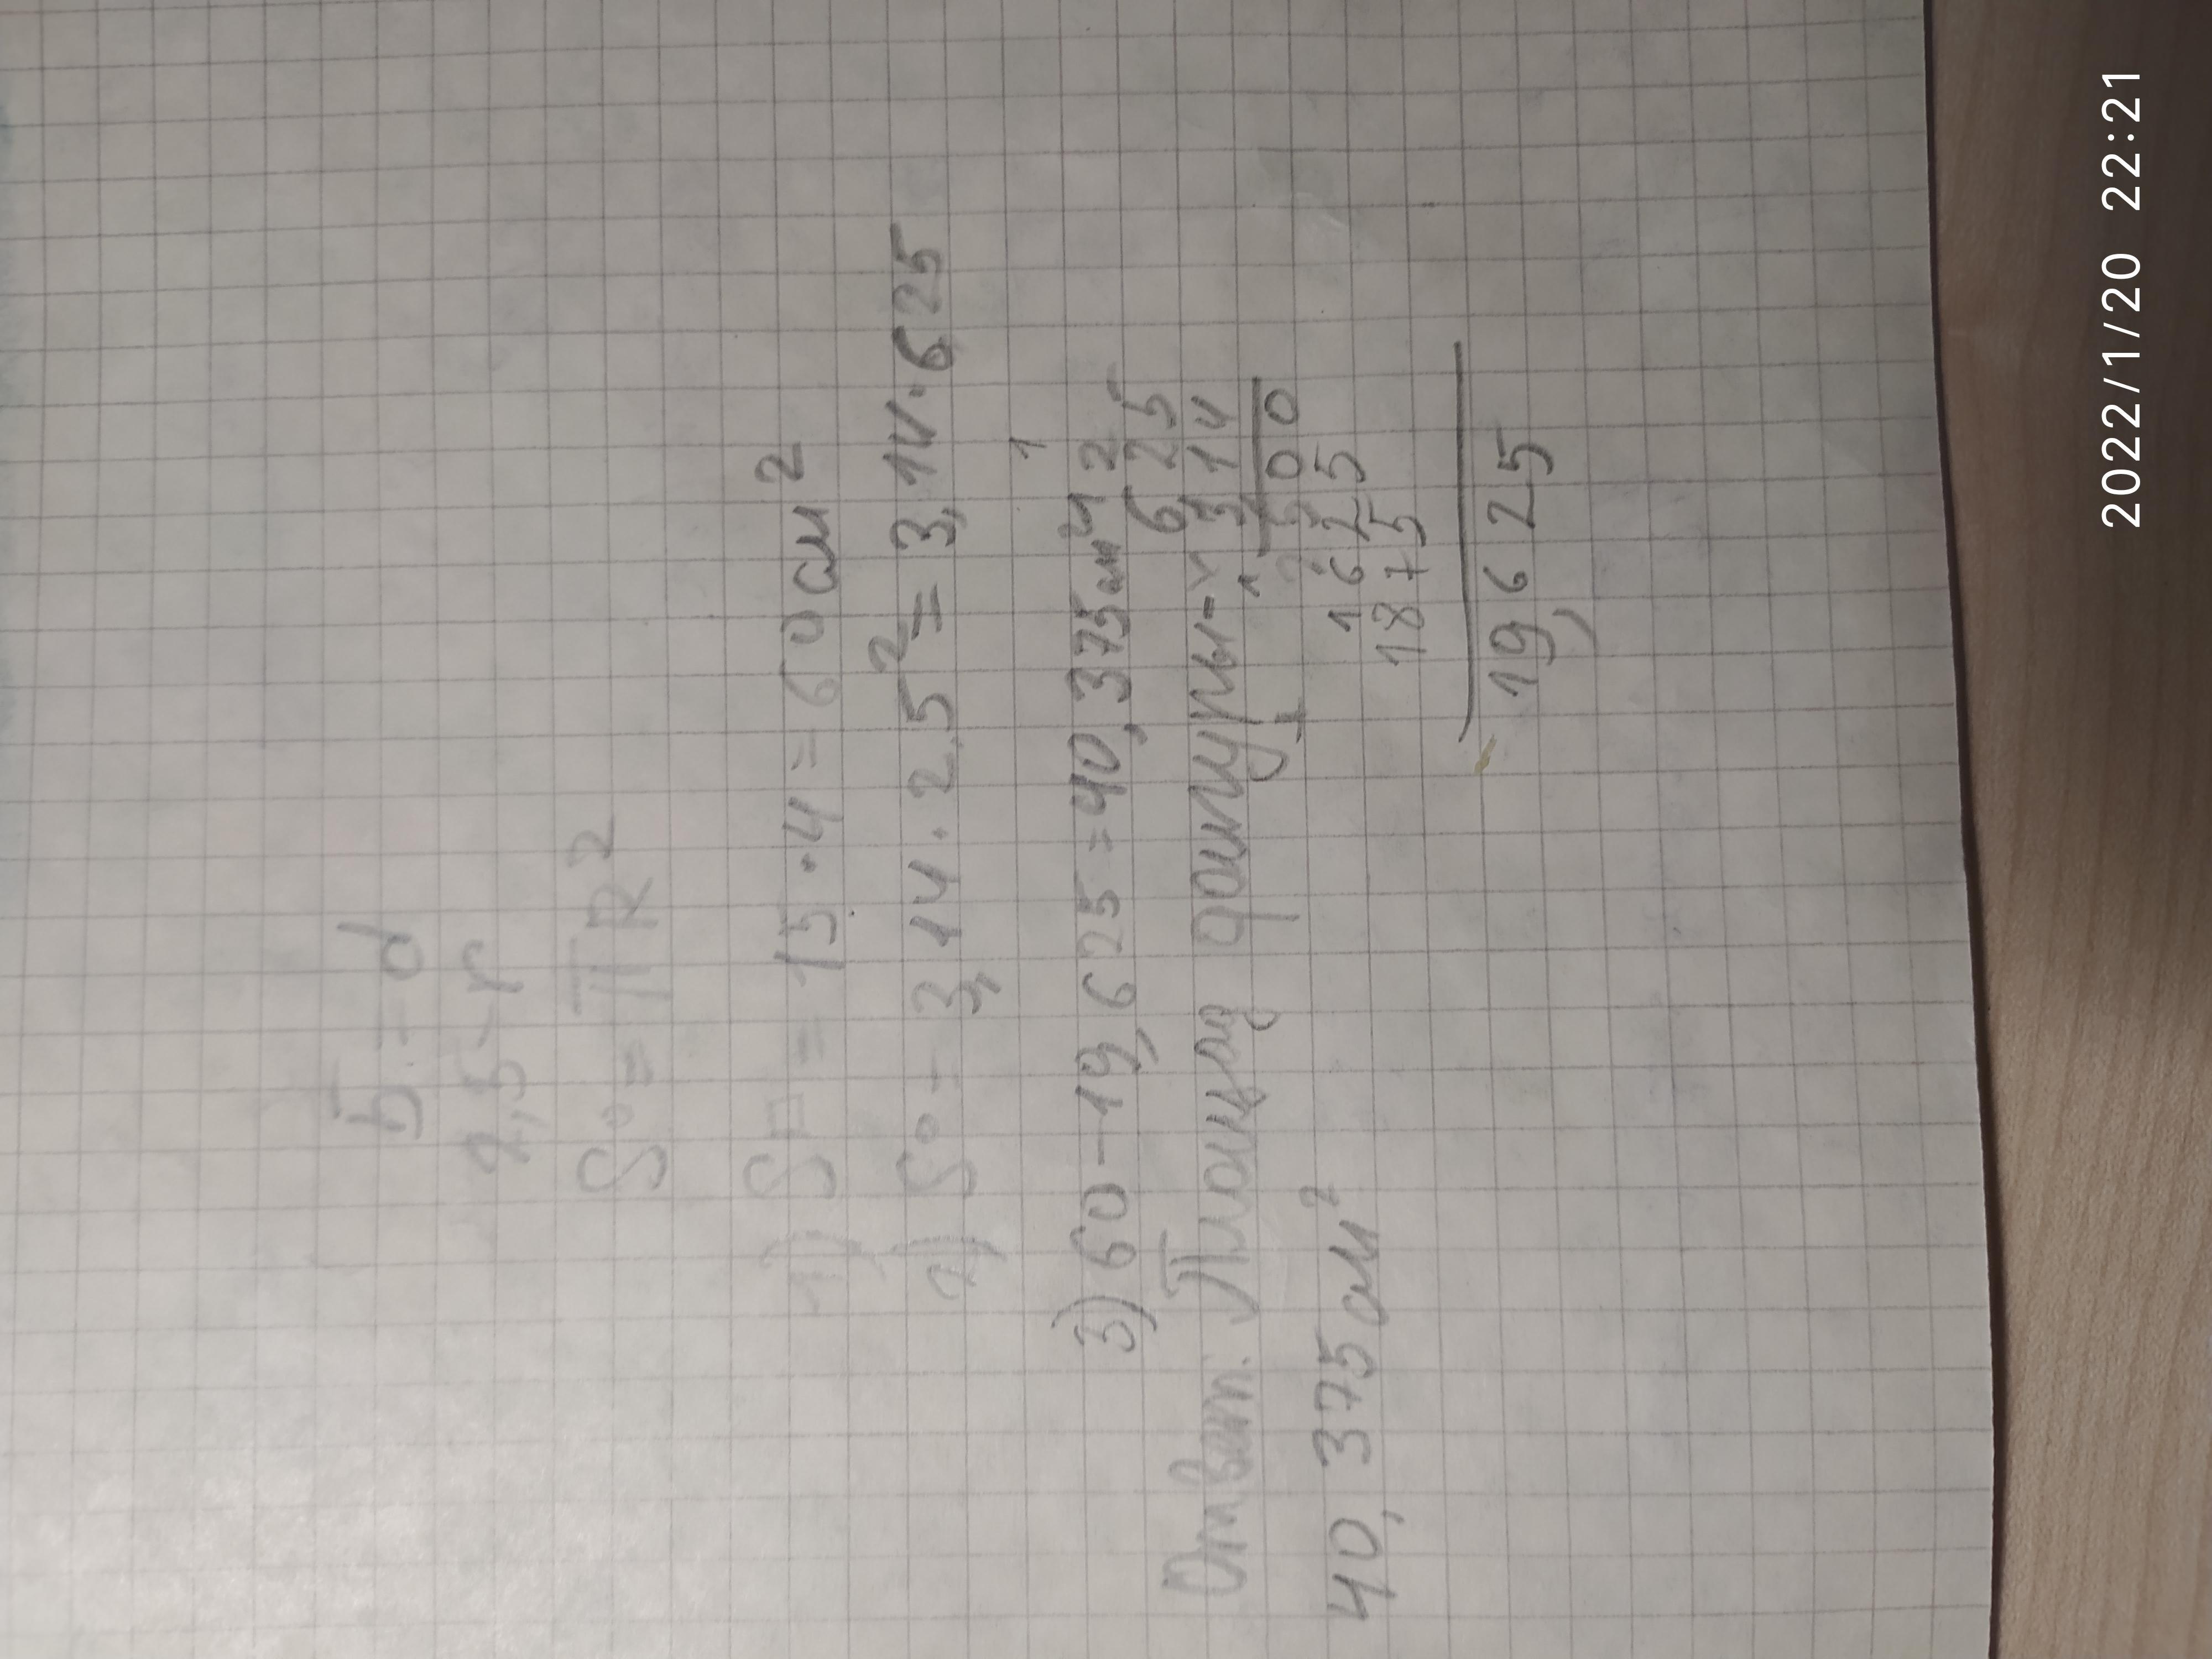 5 - d
2,5 - r
S○ = ПR²
1) S□ = 15 · 4 = 60 см²
2) S○ - 3,14 · 2,5² = 3,14 · 6,25
1
3) 60 - 19,625 = 40,375 см²
Ответ: Площад фигуры -
40,375 см²
1 2
6 2 5
3 1 4
2 5 0 0
+ 6 2 5
1 8 7 5
19,625
2022/1/20 22:21